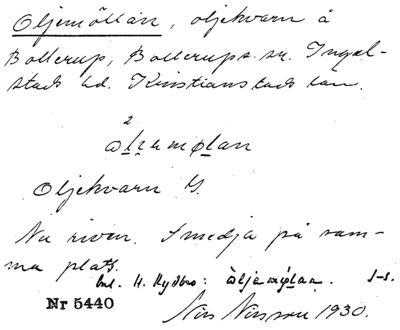 Oljemöllan, oljekvarn å
Bollerup, Bollerups sn. Ingel-
stads hd. Kristianstads län.
2
Oljekvarn
Nu riven. Smedja på sam-
ma plats.
enl. H. Rydbro: J-s.
Nr 5440 Nils Nilsson 1930.